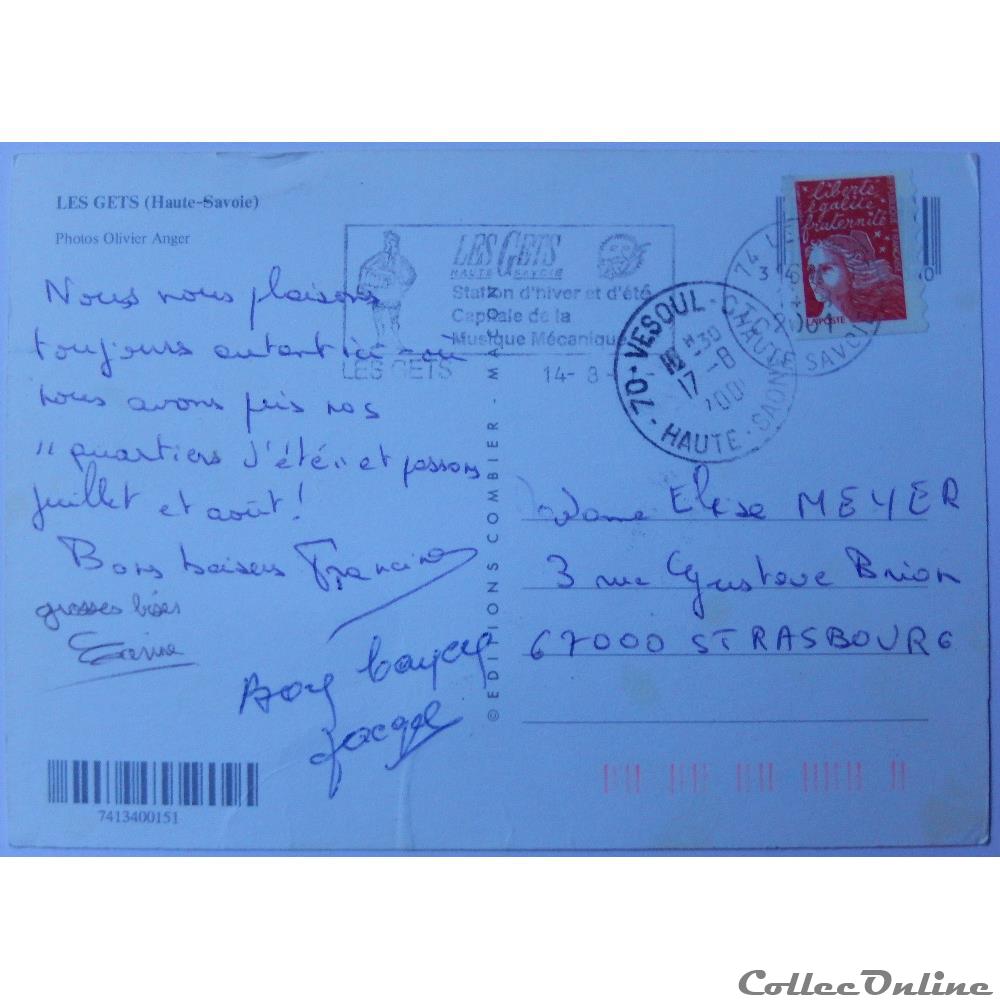 LES GETS (Haute-Savoie)
Photos Olivier Anger
LES GETS
HAUTE SAVOIE
Station d'hiver et d'été
Capitale de la
Musique Mécanique
LES GETS 14-8-
liberté
égalité
fraternité
LA POSTE
74 LES GETS
HAUTE SAVOIE
70-VESOUL-
17-8
HAUTE-SAONE
Nous nous plaisons
toujours autant ici où
nous avons pris nos
"quartiers d'été" et passons
juillet et août!
Bons baisers Francine
grosses bises
Bons baisers
Jacques
© EDITIONS COMBIER - MACON
Madame Elise MEYER
3 rue Gustave Brion
67000 STRASBOURG
7413400151
CollecOnline